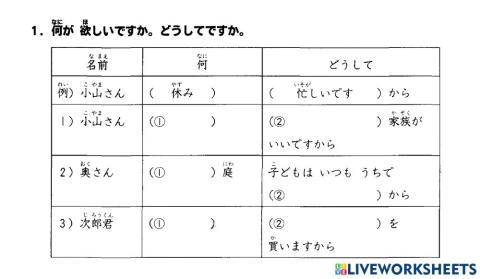 1. 何が 欲しいですか。どうしてですか。
名前 何 どうして
例) 小山さん ( 休み ) ( 忙しいです ) から
1) 小山さん (① ) (② ) 家族が
いいですから
2) 奥さん (① ) 庭 子どもは いつも うちで
(② ) から
3) 次郎君 (① ) (② ) を
買いますから
LIVEWORKSHEETS